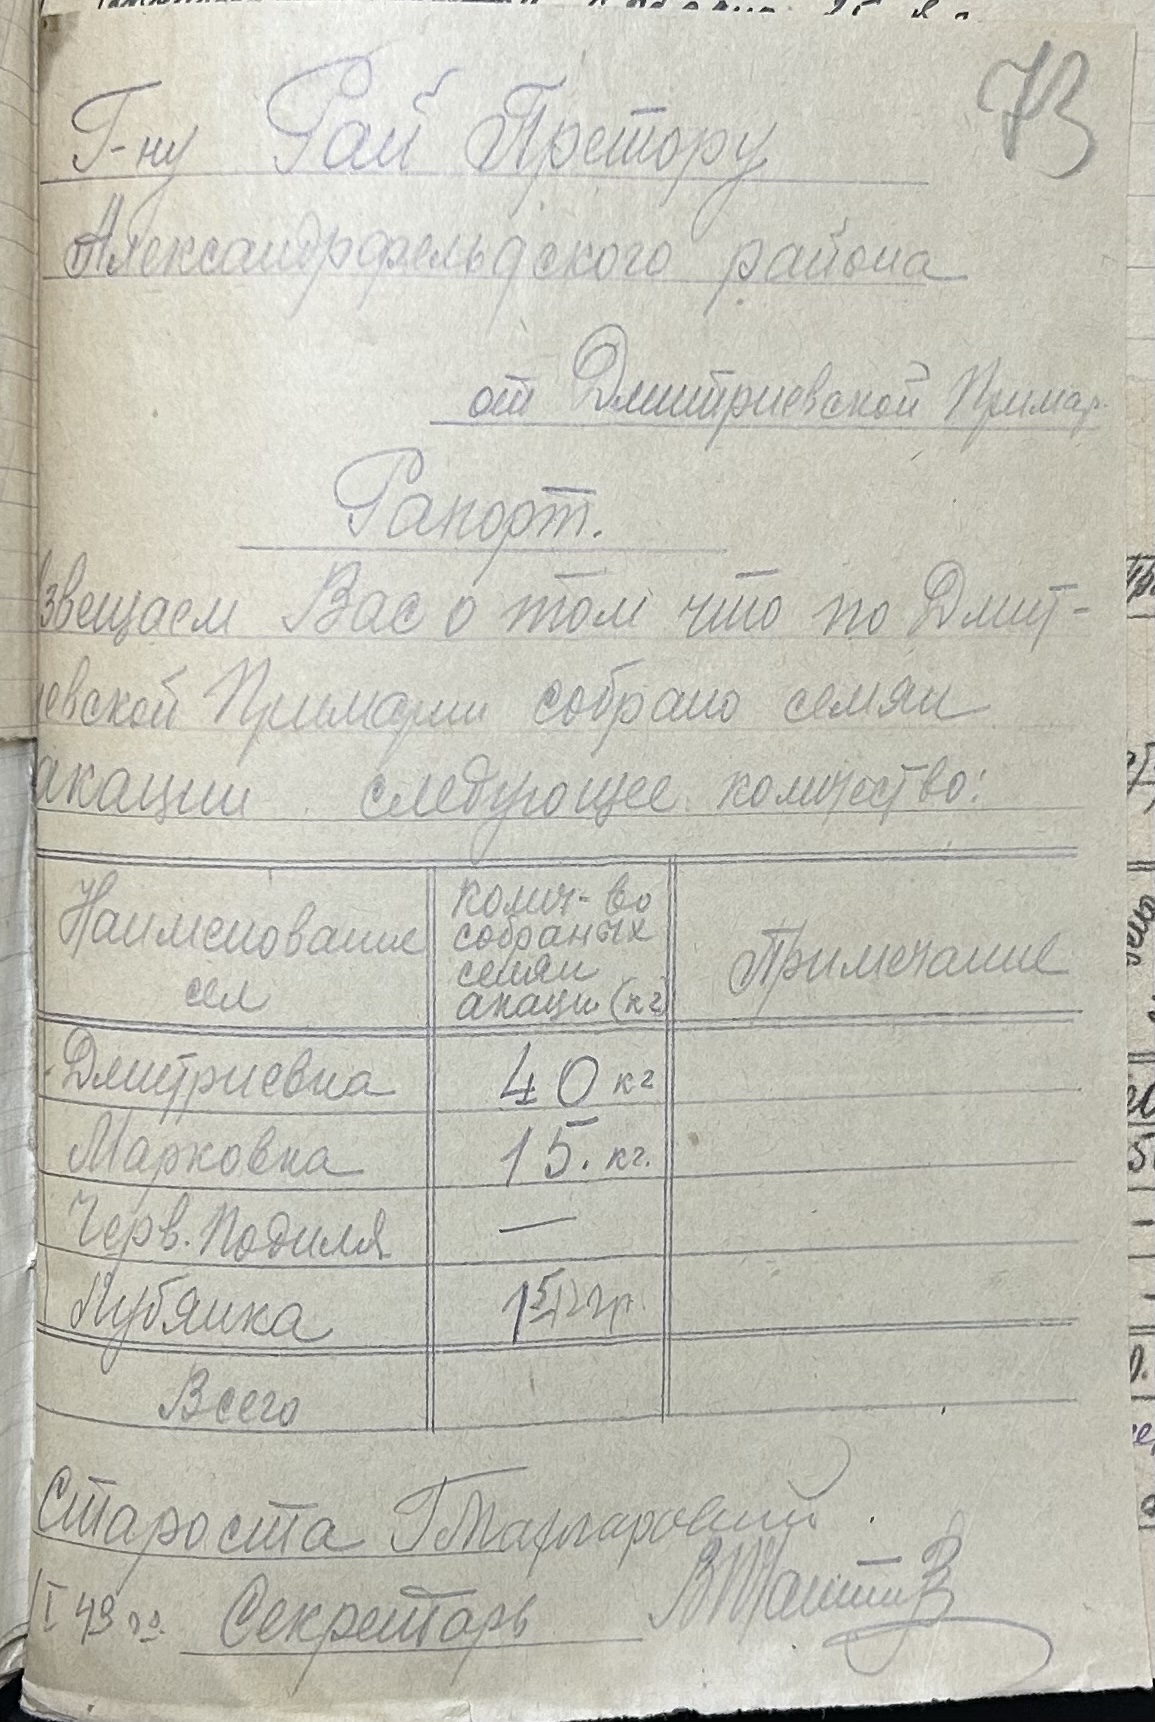 73
Г-ну Рай Претору
Александрфельдского района
от Дмитриевской Примар.
Рапорт.
звещаем Вас о том что по Дмит-
евской Примарии собрано семян
акации следующее количество:
Наименование сел
колич-во собраных семян акаци (кг)
Примечание
Дмитриевка 40 кг
Марковка 15. кг.
Черв. Подиля —
Кубянка
Всего
Староста
I 43 го. Секретарь